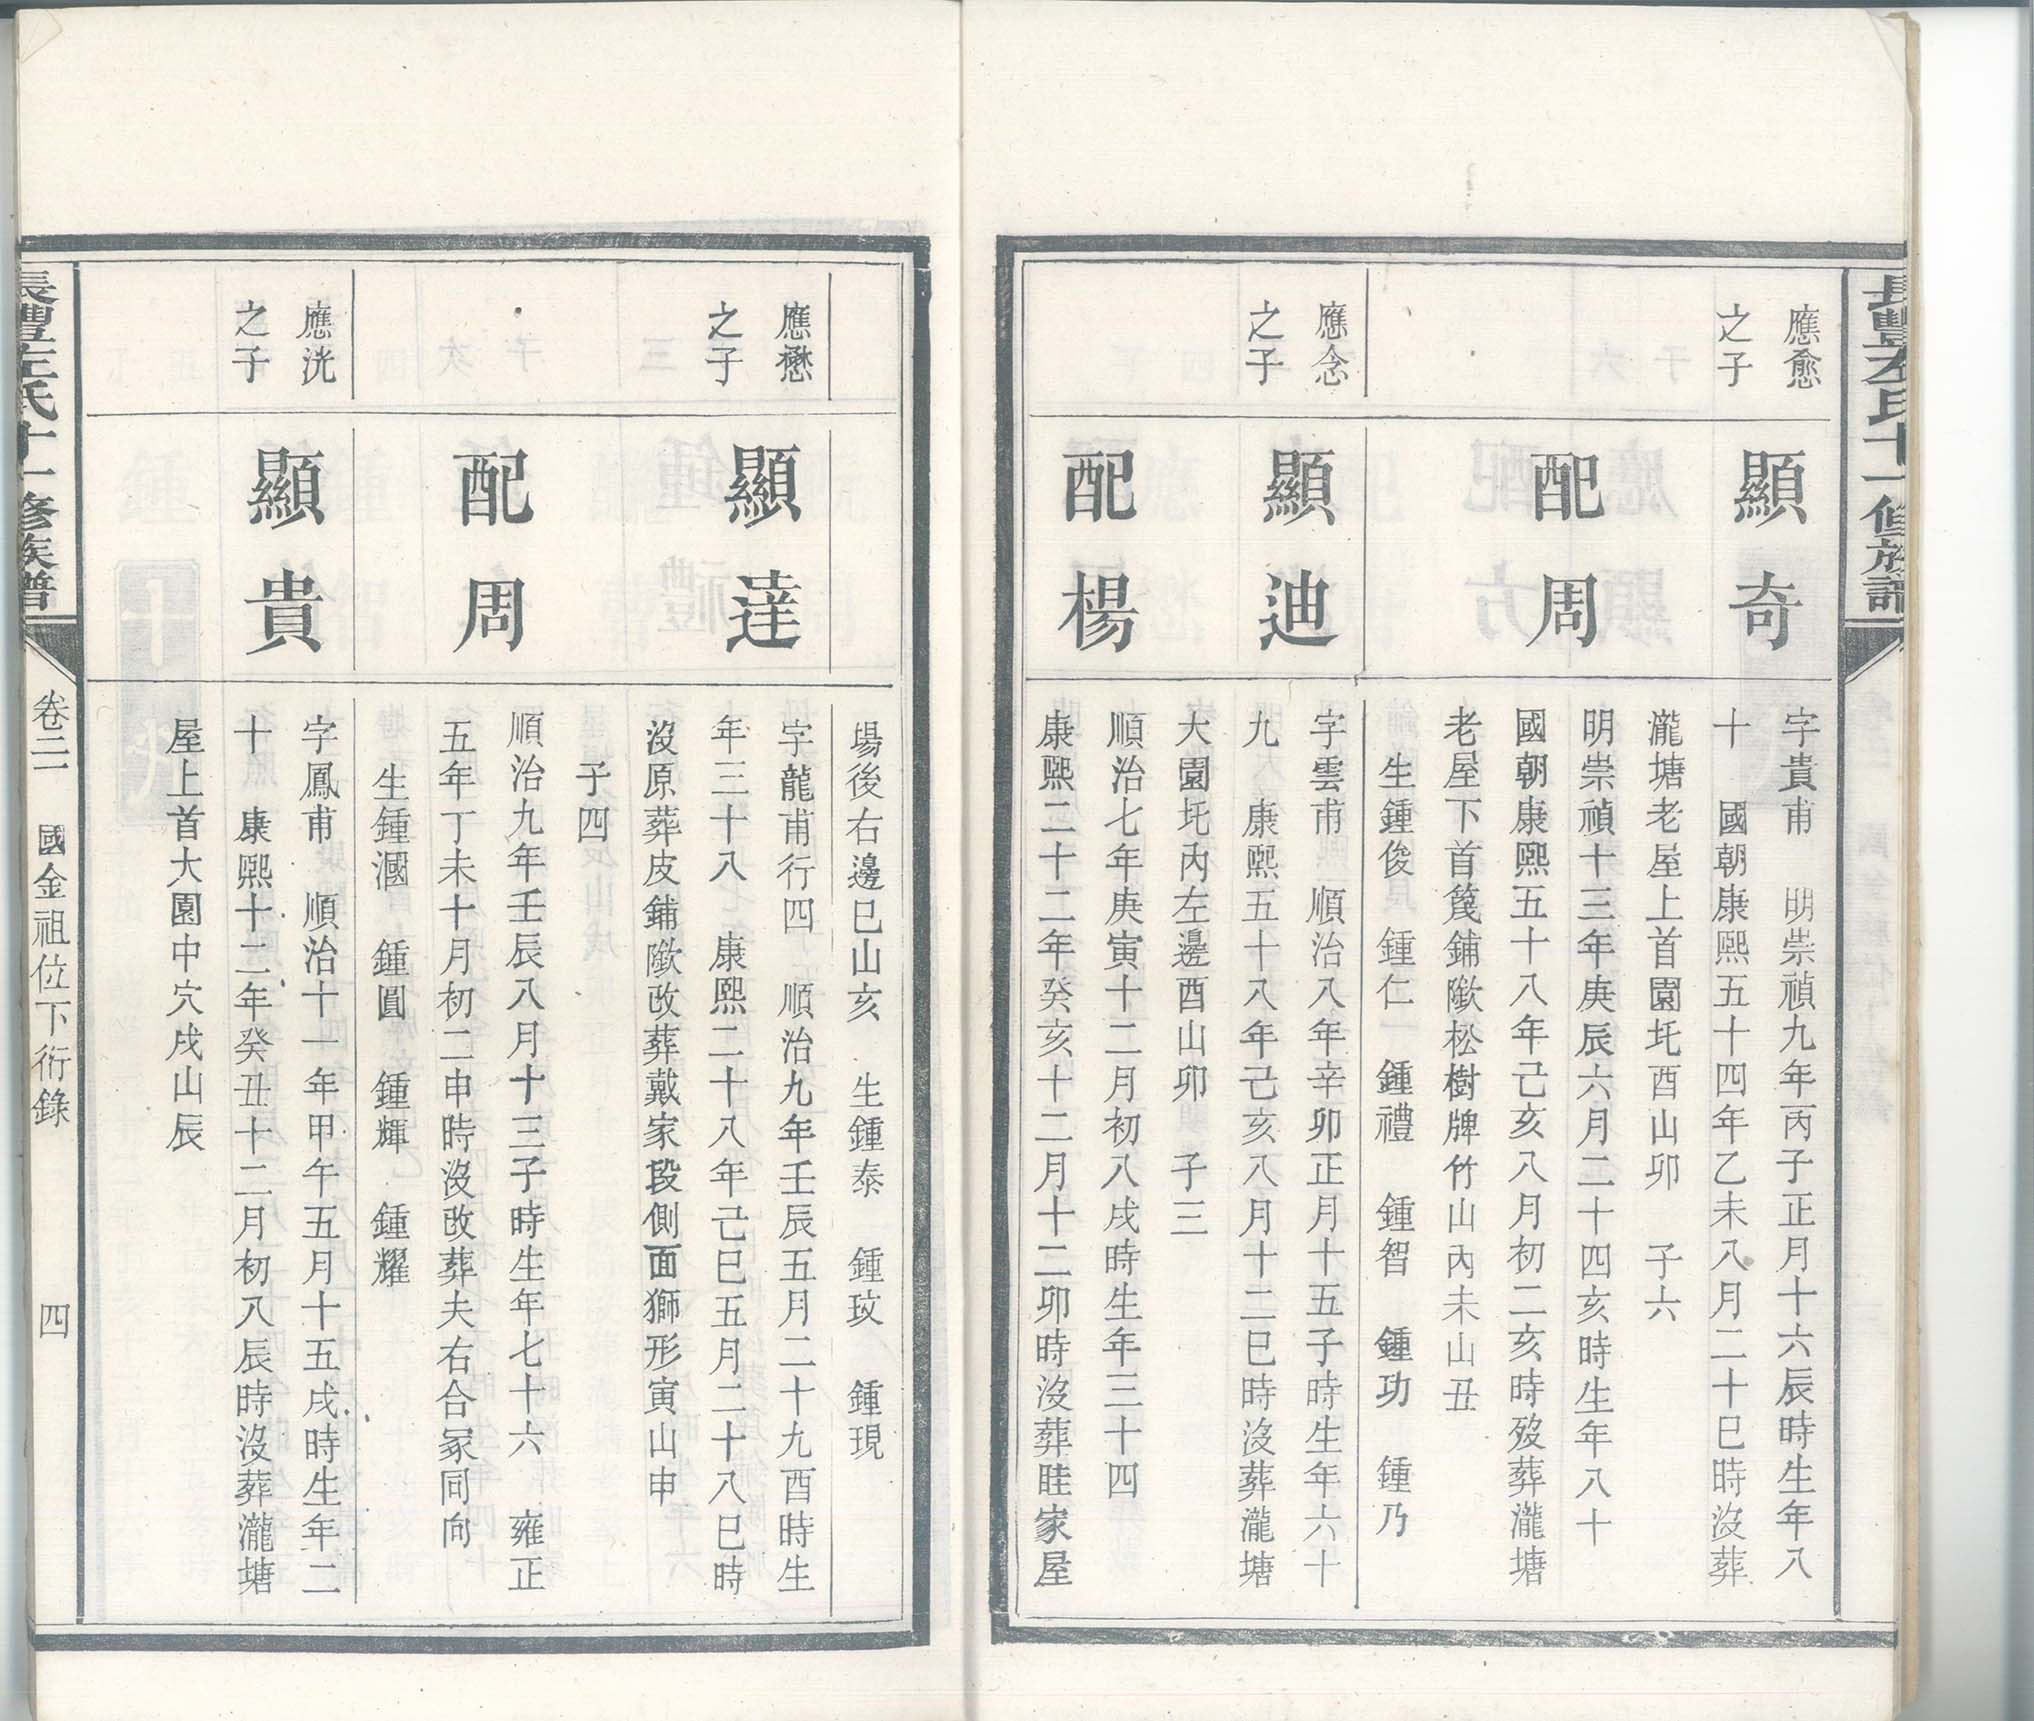 長豐左氏十一修族譜
應愈
之子
顯奇
字貴甫 明崇禎九年丙子正月十六辰時生年八
十 國朝康熙五十四年乙未八月二十巳時沒葬
瀧塘老屋上首園圫酉山卯 子六
配周
明崇禎十三年庚辰六月二十四亥時生年八十
國朝康熙五十八年己亥八月初二亥時歿葬瀧塘
老屋下首篾鋪墩松樹牌竹山內未山丑
生鍾俊 鍾仁 鍾禮 鍾智 鍾功 鍾乃
應念
之子
顯迪
字雲甫 順治八年辛卯正月十五子時生年六十
九 康熙五十八年己亥八月十二巳時沒葬瀧塘
大園圫內左邊酉山卯 子三
配楊
順治七年庚寅十二月初八戌時生年三十四
康熙二十二年癸亥十二月十二卯時沒葬眭家屋
場後右邊巳山亥 生鍾泰 鍾玟 鍾現
應懋
之子
顯達
字龍甫行四 順治九年壬辰五月二十九酉時生
年三十八 康熙二十八年己巳五月二十八巳時
沒原葬皮鋪墩改葬戴家段側面獅形寅山申
子四
配周
順治九年壬辰八月十三子時生年七十六 雍正
五年丁未十月初二申時沒改葬夫右合冢同向
生鍾漍 鍾圓 鍾輝 鍾耀
應洸
之子
顯貴
字鳳甫 順治十一年甲午五月十五戌時生年二
十 康熙十二年癸丑十二月初八辰時沒葬瀧塘
屋上首大園中穴戌山辰
長豐左氏十一修族譜
卷二 國金祖位下衍錄 四